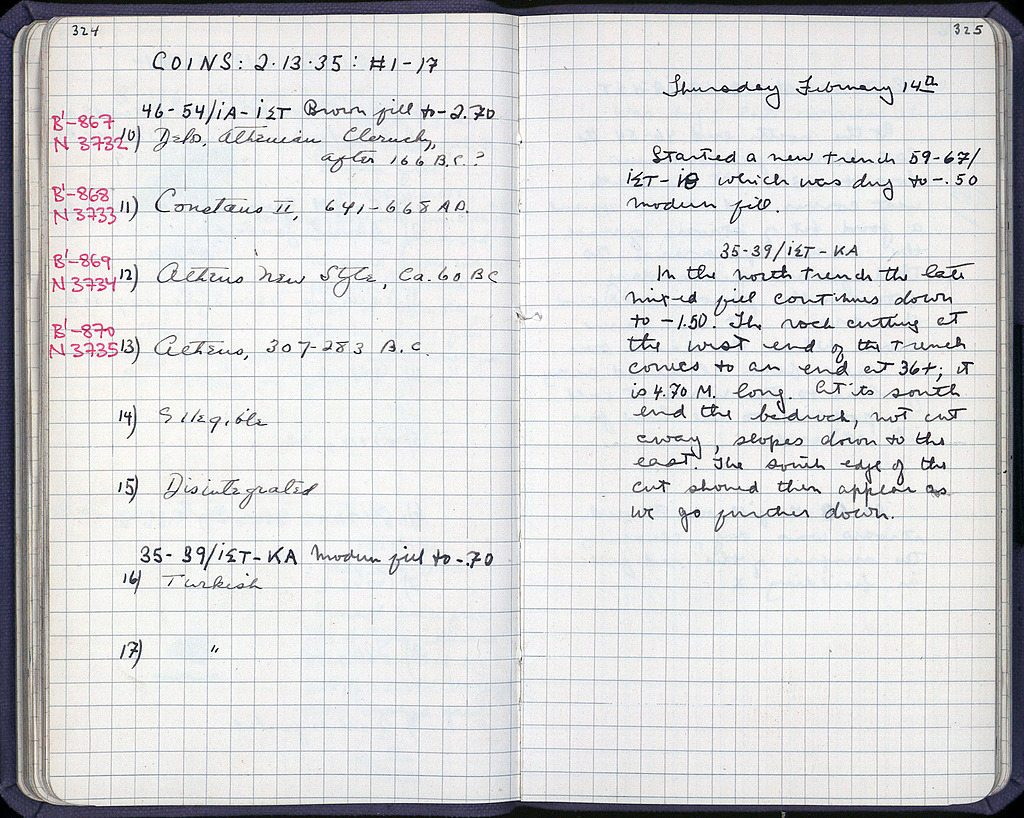 324
COINS: 2·13·35: #1-17
46-54/iA-iΣT Brown fill to -2.70
B'-867
N 3732
10) Delos, Athenian Cleruchy,
after 166 B.C.?
B'-868
N 3733
11) Constans II, 641-668 AD.
B'-869
N 3734
12) Athens New Style, Ca. 60 BC
B'-870
N 3735
13) Athens, 307-283 B.C.
14) Illegible
15) Disintegrated
35-39/iΣT-KA Modern fill to -.70
16) Turkish
17) "
325
Thursday February 14th
Started a new trench 59-67/
iΣT-iΘ which was dug to -.50
modern fill.
35-39/iΣT-KA
In the north trench the late
mixed fill continues down
to -1.50. The rock cutting at
the west end of the trench
comes to an end at 36+; it
is 4.70 M. long. At its south
end the bedrock, not cut
away, slopes down to the
east. The south edge of the
cut should then appear as
we go further down.